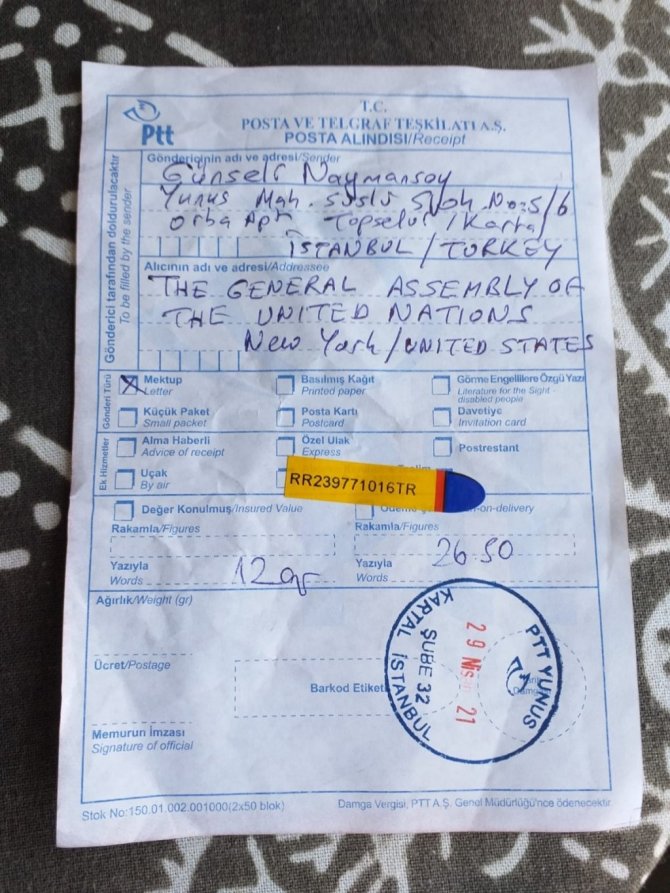 Ptt
T.C.
POSTA VE TELGRAF TEŞKİLATI A.Ş.
POSTA ALINDISI/Receipt
Gönderici tarafından doldurulacaktır
To be filled by the sender
Göndericinin adı ve adresi/Sender
Günseli Naymansoy
Yunus Mah. Süslü Sok. No:5/6
Orba Apt Topselvi/Kartal
İSTANBUL/TURKEY
Alıcının adı ve adresi/Addressee
THE GENERAL ASSEMBLY OF
THE UNITED NATIONS
New York/UNITED STATES
Gönderi Türü
X Mektup
Letter
Basılmış Kağıt
Printed paper
Görme Engellilere Özgü Yazı
Literature for the Sight -
disabled people
Küçük Paket
Small packet
Posta Kartı
Postcard
Davetiye
Invitation card
Ek Hizmetler
Alma Haberli
Advice of receipt
Özel Ulak
Express
Postrestant
Uçak
By air
RR239771016TR
Değer Konulmuş/Insured Value
-on-delivery
Rakamla/Figures
Rakamla/Figures
Yazıyla
Words
12 gr
Yazıyla
Words
26.50
Ağırlık/Weight (gr)
Ücret/Postage
Barkod Etiketi
Memurun İmzası
Signature of official
PTT YUNUS
29 Nisan 21
ŞUBE 32
KARTAL İSTANBUL
Stok No:150.01.002.001000(2x50 blok)
Damga Vergisi, PTT A.Ş. Genel Müdürlüğü'nce ödenecektir.